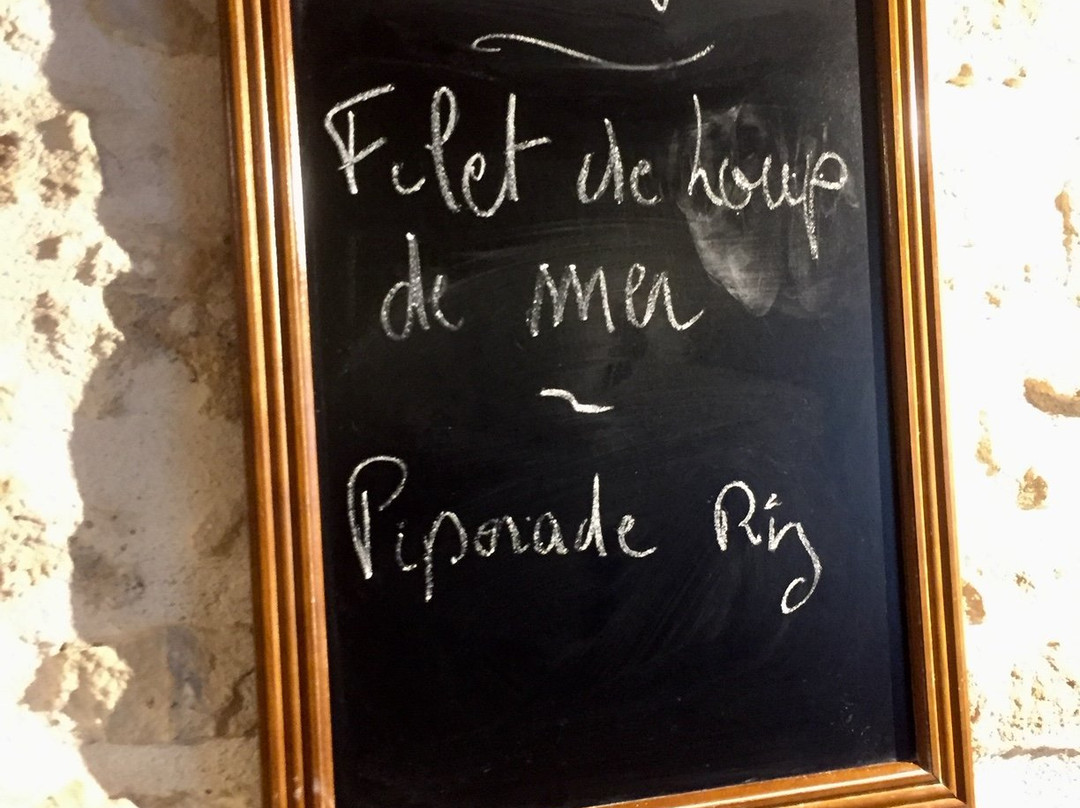 Filet de Loup
de mer
~
Piporade Riz